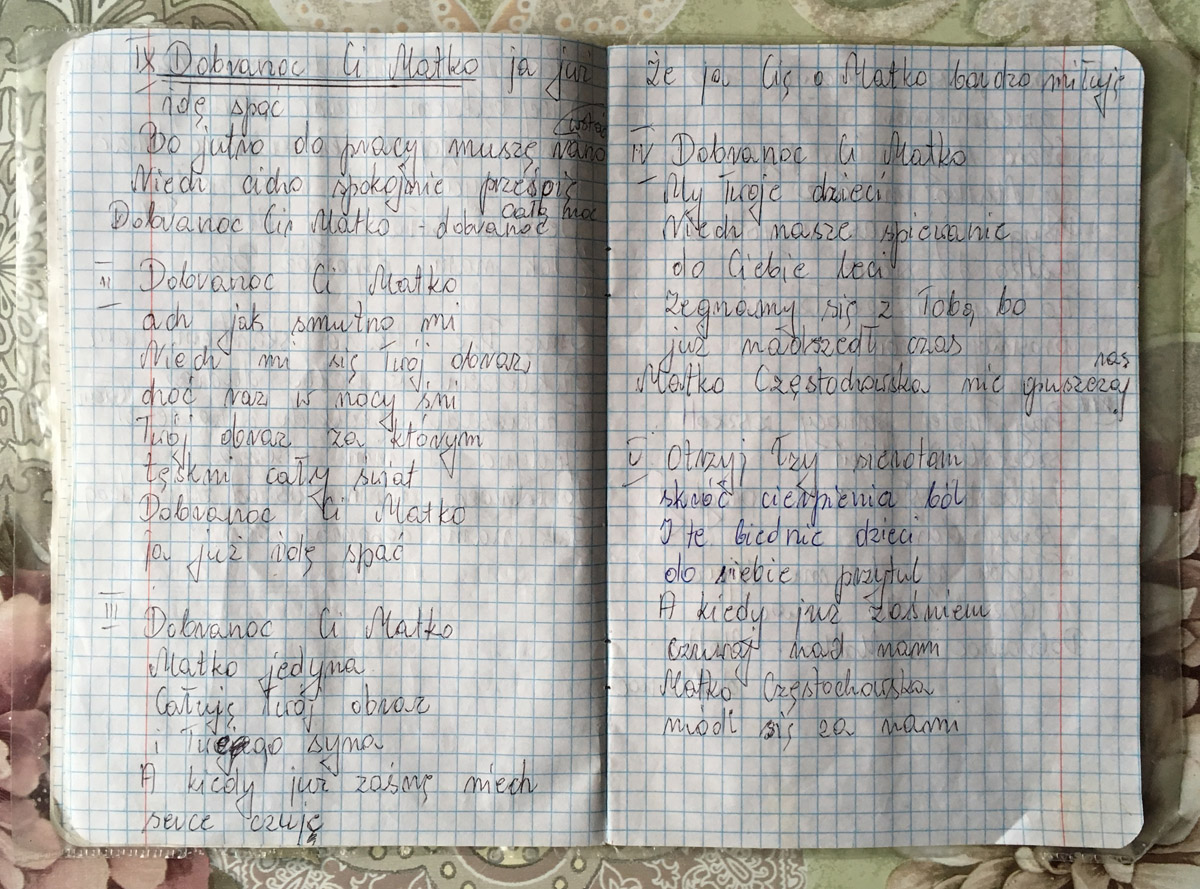 IX Dobranoc Ci Matko ja już
idę spać
Bo jutro do pracy muszę rano wstać
Niech cicho spokojnie prześpię
całą noc
Dobranoc Ci Matko - dobranoc
II Dobranoc Ci Matko
ach jak smutno mi
Niech mi się Twój obraz,
choć raz w nocy śni
Twój obraz za którym
tęskni cały świat
Dobranoc Ci Matko
ja już idę spać
III Dobranoc Ci Matko
Matko jedyna
Całuję Twój obraz
i Twojego syna
A kiedy już zasnę niech
serce czuję
Że ja Cię o Matko bardzo miłuję
IV Dobranoc Ci Matko
My Twoje dzieci
Niech nasze śpiewanie
do Ciebie leci
Żegnamy się z Tobą bo
już nadszedł czas
Matko Częstochowska nie opuszczaj nas
V Otrzyj łzy sierotom
skróć cierpienia ból
I te biedne dzieci
do siebie przytul
A kiedy już zaśniem
czuwaj nad nami
Matko Częstochowska
módl się za nami